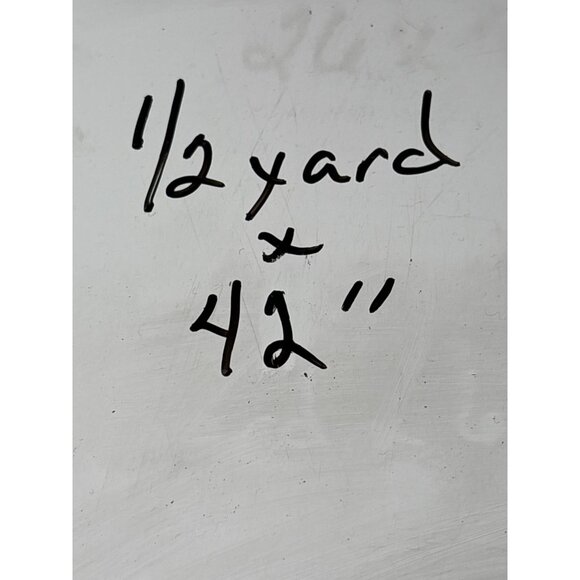 1/2 yard
x
42"